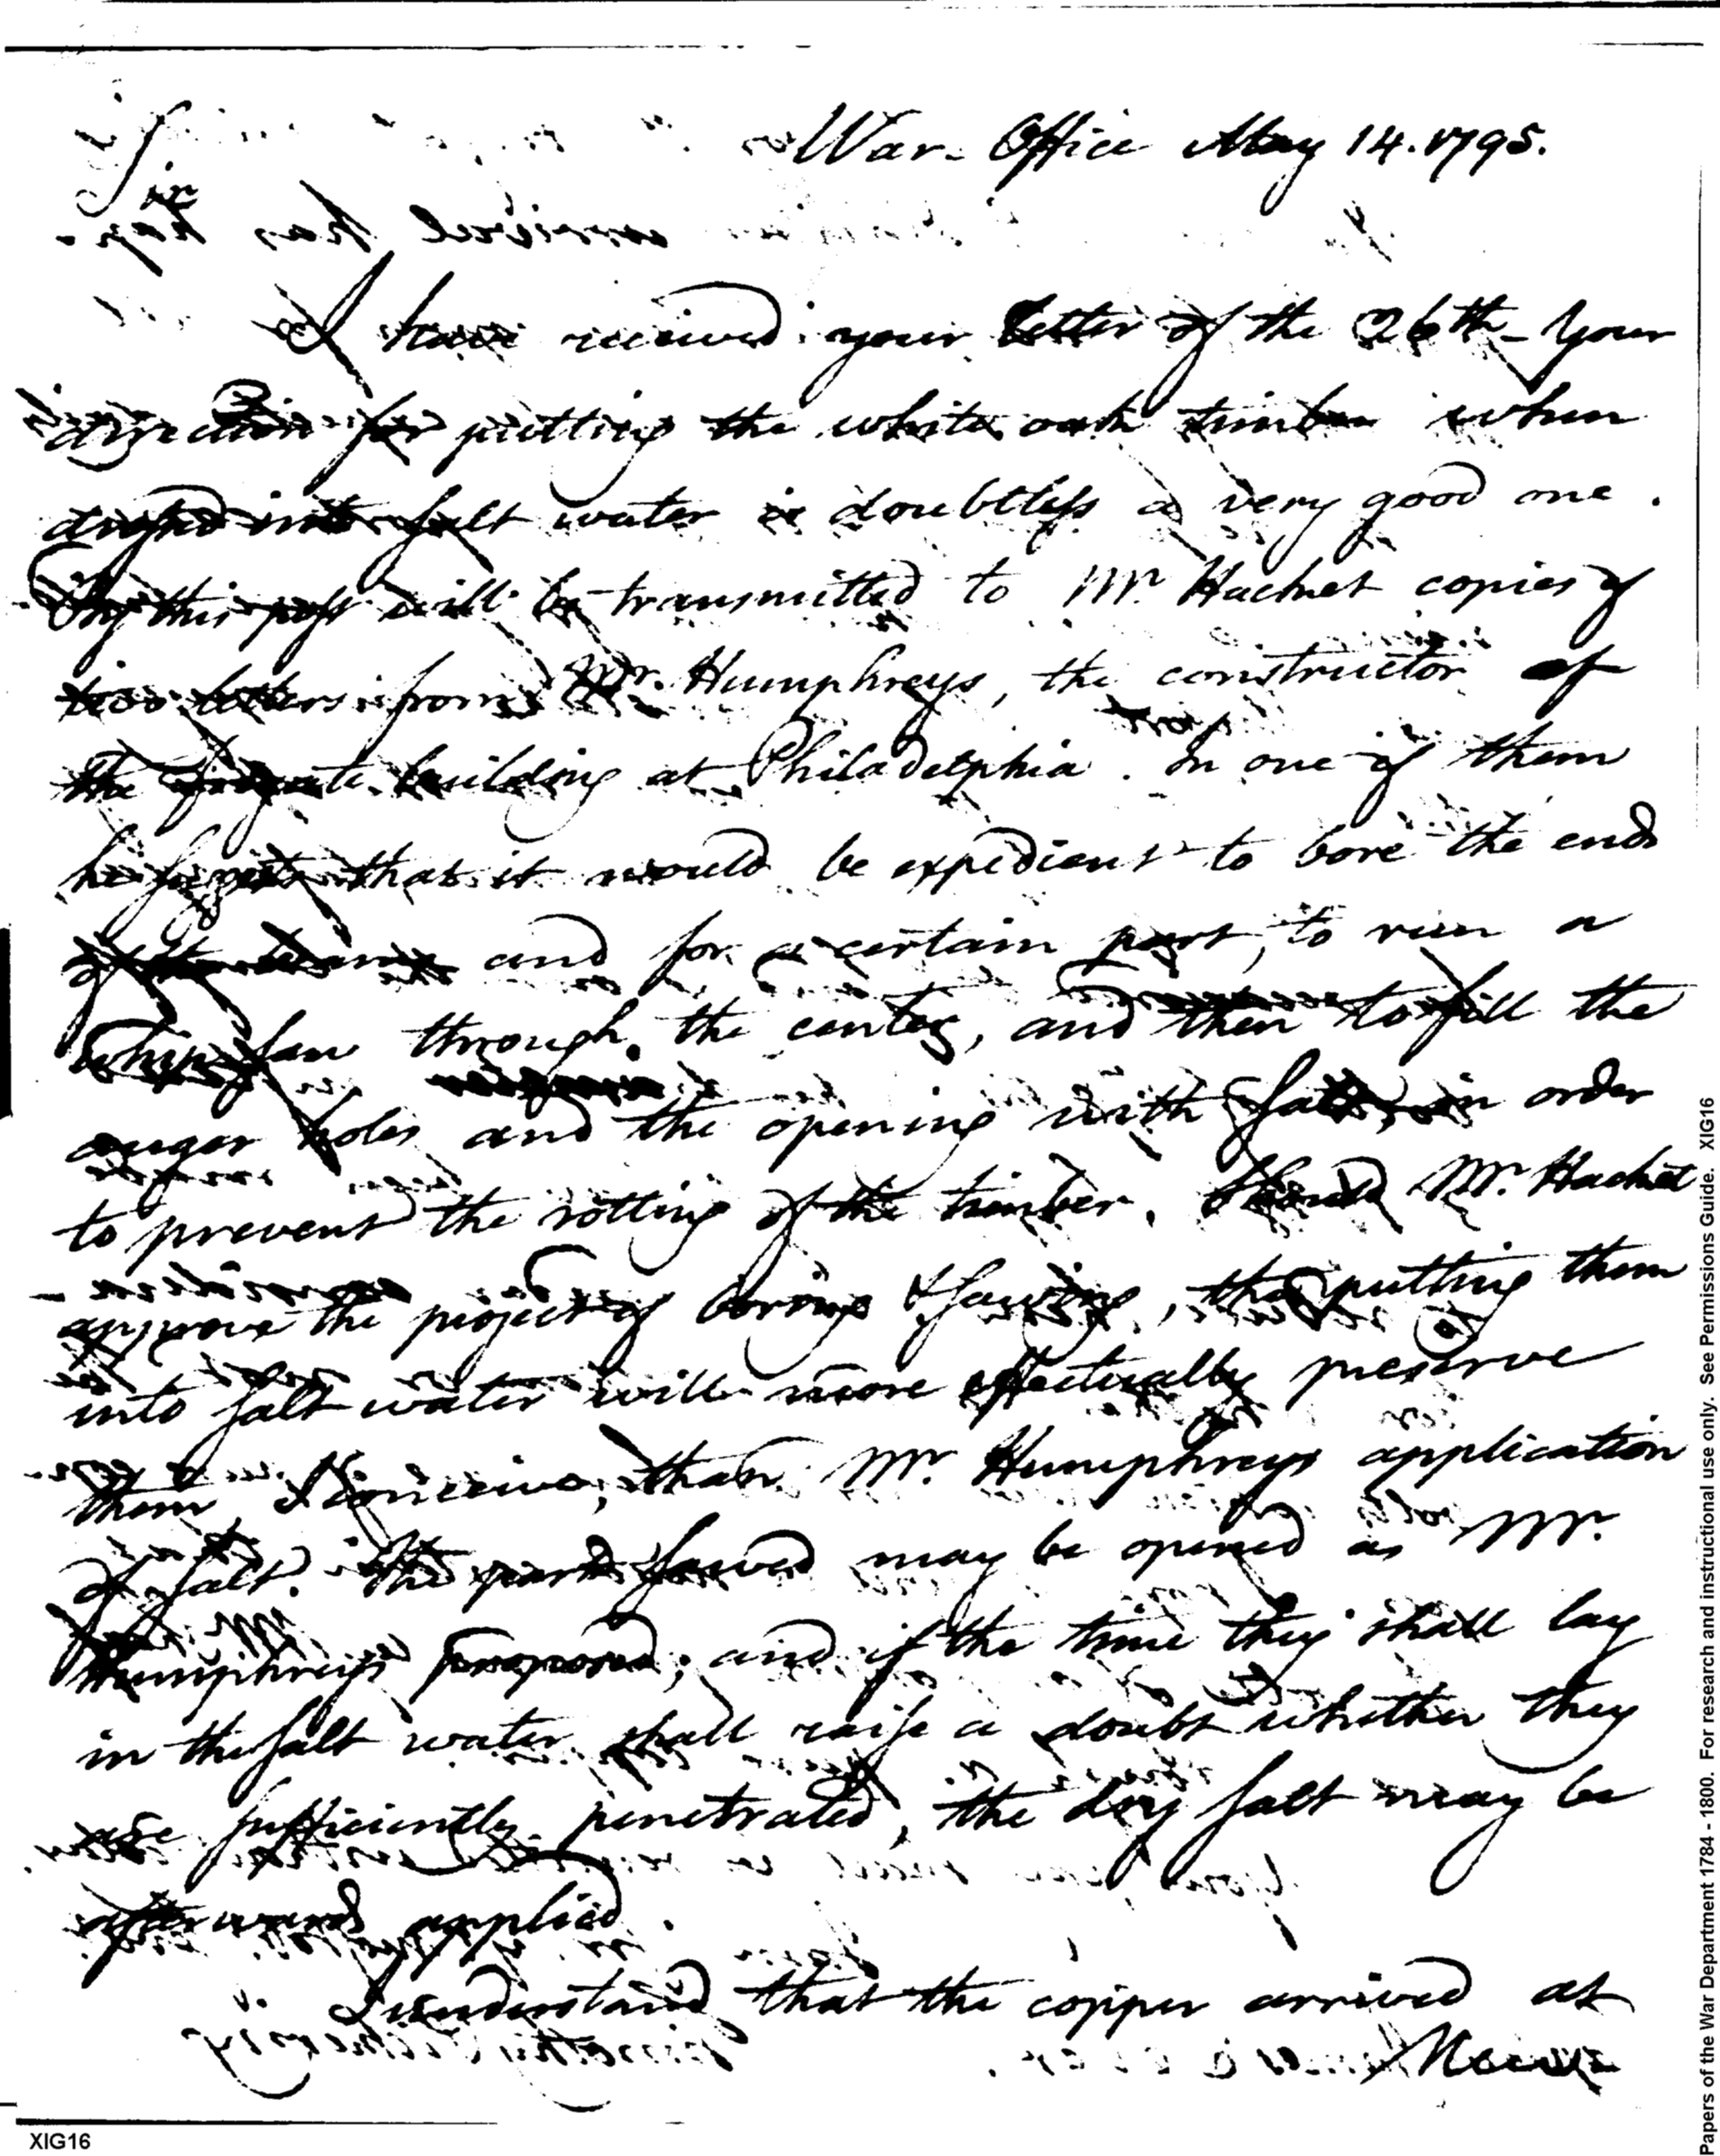 War-Office May 14. 1795.
Sir
I have received your letter of the 26th - Your
direction for putting the white oak timber when
docked into salt water is doubtless a very good one.
By this post will be transmitted to Mr. Hacket copies of
two letters from Mr. Humphreys, the constructor of
the frigate building at Philadelphia. In one of them
he suggests that it would be expedient to bore the ends
of the beams and for a certain part, to run a
whip saw through the center, and then to fill the
auger holes and the opening with salt, in order
to prevent the rotting of the timber. Should Mr. Hacket
approve the project of boring & sawing, the putting them
into salt water will more effectually preserve
them I conceive, than Mr. Humphreys application
of salt. The part sawed may be opened as Mr.
Humphreys proposed; and if the time they shall lay
in the salt water shall raise a doubt whether they
are sufficiently penetrated, the dry salt may be
afterwards applied.
I understand that the copper arrived at
New
XIG16
Papers of the War Department 1784 - 1800. For research and instructional use only. See Permissions Guide. XIG16